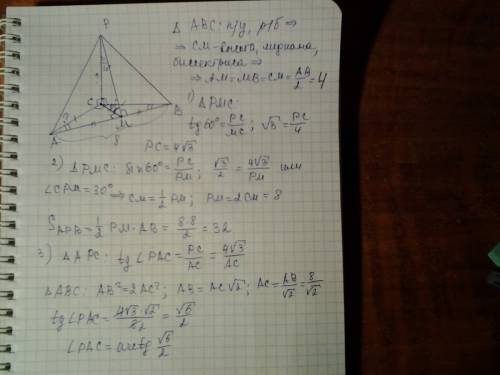 P
C
A
B
M
8
Δ ABC: п/у, р/б ⇒
⇒ CM - высота, медиана,
биссектриса ⇒
⇒ AM = MB = CM = AB/2 = 4
1) Δ PMC:
tg 60° = PC/MC; √3 = PC/4
PC = 4√3
2) Δ PMC: sin 60° = PC/PM; √3/2 = 4√3/PM или
∠CPM = 30° ⇒ CM = 1/2 PM; PM = 2CM = 8
S_APB = 1/2 PM · AB = 8·8/2 = 32
3) Δ APC: tg ∠PAC = PC/AC = 4√3/AC
Δ ABC: AB² = 2AC²; AB = AC√2; AC = AB/√2 = 8/√2
tg ∠PAC = 4√3·√2/8 2 = √6/2
∠PAC = arctg √6/2